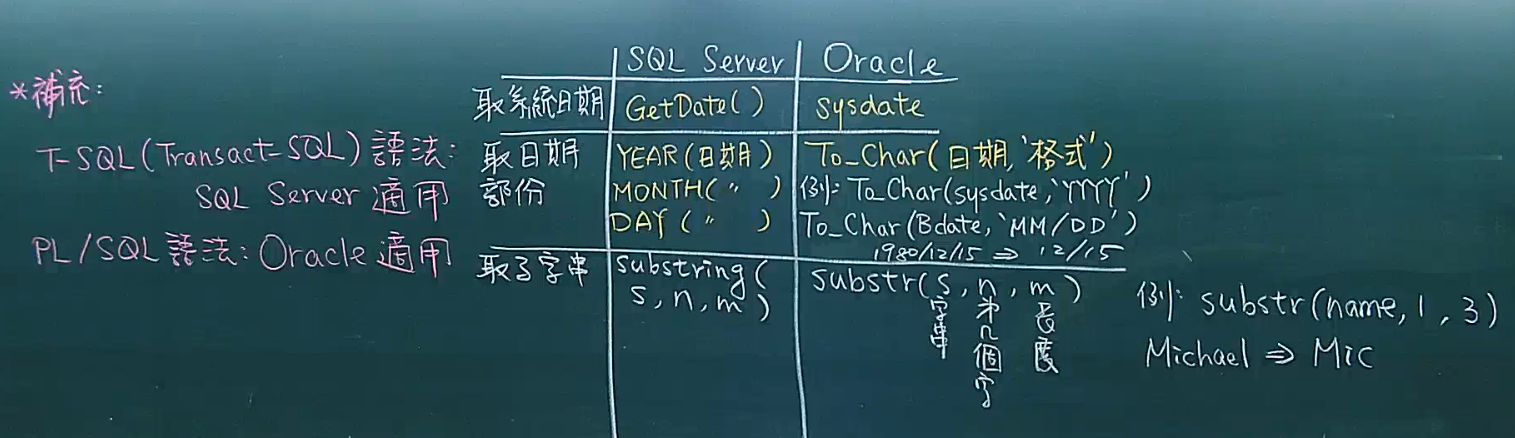 *補充:
T-SQL(Transact-SQL)語法:
SQL Server 適用
PL/SQL 語法: Oracle 適用
SQL Server Oracle
取系統日期 GetDate() sysdate
取日期 YEAR(日期) To_Char(日期,'格式')
部份 MONTH( 〃 ) 例: To_Char(sysdate,'YYYY')
DAY ( 〃 ) To_Char(Bdate,'MM/DD')
1980/12/15 ⇒ 12/15
取子字串 substring( substr(s, n, m)
s, n, m )
字串
第n個字
長度
例: substr(name, 1, 3)
Michael ⇒ Mic